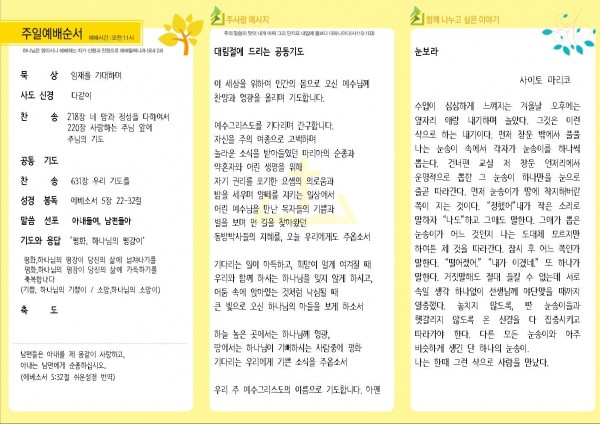 주일예배순서 예배시간 : 오전11시
하나님은 영이시니 예배하는 자가 신령과 진정으로 예배할찌니라 (요4:24)
묵 상 임재를 기대하며
사도 신경 다같이
찬 송 218장 네 맘과 정성을 다하여서
220장 사랑하는 주님 앞에
주님의 기도
공동 기도
찬 송 631장 우리 기도를
성경 봉독 에베소서 5장 22-32절
말씀 선포 아내들여, 남편들아
기도와 응답 '평화, 하나님의 평강이'
평화,하나님의 평강이 당신의 삶에 넘쳐나기를
평화,하나님의 평강이 당신의 삶에 가득하기를
축복합니다
(기쁨, 하나님의 기쁨이 / 소망,하나님의 소망이)
축 도
남편들은 아내를 제 몸같이 사랑하고,
아내는 남편에게 순종하십시오.
(에베소서 5:32절 쉬운성경 번역)
주사랑 메시지
주의 말씀의 맛이 내게 어찌 그리 단지요 내입에 꿀보다 더하니이다(시119:103)
대림절에 드리는 공동기도
이 세상을 위하여 인간의 몸으로 오신 예수님께
찬양과 영광을 올리며 기도합니다.
예수그리스도를 기다리며 간구합니다.
자신을 주의 여종으로 고백하며
놀라운 소식을 받아들였던 마리아의 순종과
약혼자와 어린 생명을 위해
자기 권리를 포기한 요셉의 의로움과
밤을 세우며 양떼를 지키는 일상에서
어린 예수님을 만난 목자들의 기쁨과
별을 보며 먼 길을 찾아왔던
동방박사들의 지혜를, 오늘 우리에게도 주옵소서
기다리는 일에 아득하고, 희망이 멀게 여겨질 때
우리와 함께 하시는 하나님을 잊지 않게 하시고,
어둠 속에 앉아있는 것처럼 낙심될 때
큰 빛으로 오신 하나님의 아들을 보게 하소서
하늘 높은 곳에서는 하나님께 영광,
땅에서는 하나님이 기뻐하시는 사람중에 평화
기다리는 우리에게 기쁜 소식을 주옵소서
우리 주 예수그리스도의 이름으로 기도합니다. 아멘
함께 나누고 싶은 이야기
눈보라
사이토 마리코
수업이 심심하게 느껴지는 겨울날 오후에는
옆자리 애랑 내기하며 놀았다. 그것은 이런
식으로 하는 내기이다. 먼저 창문 밖에서 풀풀
나는 눈송이 속에서 각자가 눈송이를 하나씩
뽑는다. 건너편 교실 저 창문 언저리에서
운명적으로 뽑힌 그 눈송이 하나만을 눈으로
줄곧 따라간다. 먼저 눈송이가 땅에 착지해버린
쪽이 지는 것이다. "정했어"내가 작은 소리로
말하자 "나도"하고 그애도 말한다. 그애가 뽑은
눈송이가 어느 것인지 나는 도대체 모르지만
하여튼 제 것을 따라간다. 잠시 후 어느 쪽인가
말한다. "떨어졌어." "내가 이겼네" 또 하나가
말한다. 거짓말해도 절대 들킬 수 없는데 서로
속일 생각 하나없이 선생님께 야단맞을 때까지
열중했다. 놓치지 않도록, 딴 눈송이들과
헷갈리지 않도록 온 신경을 다 집중시키고
따라가야 한다. 다른 모든 눈송이와 아주
비슷하게 생긴 단 하나의 눈송이.
나는 한때 그런 식으로 사람을 만났다.